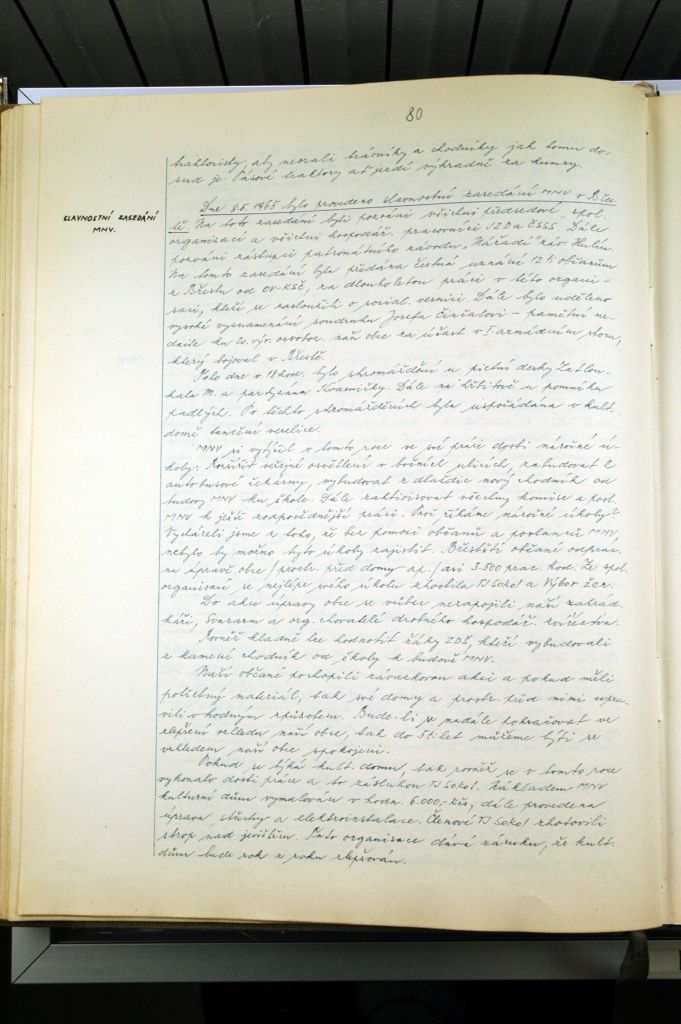 80
traktoristy, aby neorali trávníky a chodníky jak tomu do-
sud je. Pásové traktory ať jezdí výhradně za humny.
SLAVNOSTNÍ ZASEDÁNÍ
MNV.
Dne 8.5.1965 bylo provedeno slavnostní zasedání MNV v Břes-
tě. Na toto zasedání byli pozváni všichni předsedové spol.
organisací a všichni hospodář. pracovníci JZD a ČSSS. Dále
pozváni zástupci patronátního závodu, Nářadí záv. Hulín.
Na tomto zasedání byla předána čestná uznání 12ti občanům
z Břestu od OV-KSČ, za dlouholetou práci v této organi-
saci, kteří se zasloužili o social. vesnici. Dále bylo uděleno
vysoké vyznamenání soudruhu Josefu Činčalovi - pamětní me-
daile ku 20. výr. osvoboz. naší obce za účast v I. armádním sboru,
který bojoval v Břestě.
Téhož dne v 18 hod. bylo shromáždění u pietní desky Zatlou-
kala M. a partyzána Kvasničky. Dále na hřbitově u pomníku
padlých. Po těchto shromážděních byla uspořádána v kult.
domě taneční veselice.
MNV si vytýčil v tomto roce ve své práci dosti náročné ú-
koly: Rozšířit veřejné osvětlení v bočních ulicích, zabudovat 2
autobusové čekárny, vybudovat z dlaždic nový chodník od
budovy MNV ku škole. Dále zaktivisovat všechny komise a posl.
MNV k ještě zodpovědnější práci. Proč říkáme náročné úkoly?
Vycházeli jsme z toho, že bez pomoci občanů a poslanců MNV,
nebylo by možno tyto úkoly zajistit. Břestští občané odprac.
na úpravě obce /prostr. před domy ap./ asi 3.500 prac. hod. Ze spol.
organisací se nejlépe svého úkolu zhostila TJ Sokol a Výbor žen.
Do akce úpravy obce se vůbec nezapojili naši zahrád-
káři, Svazarm a org. chovatelé drobného hospodář. zvířectva.
Rovněž kladně lze hodnotit žáky ZDŠ, kteří vybudovali
z kamení chodník od školy k budově MNV.
Naši občané pochopili závazkovou akci a pokud měli
potřebný materiál, tak své domy a prostr. před nimi upra-
vili vhodným způsobem. Bude-li se nadále pokračovat ve
zlepšení vzhledu naší obce, tak do 5ti let můžeme býti se
vzhledem naší obce spokojeni.
Pokud se týká kult. domu, tak rovněž se v tomto roce
vykonalo dosti práce a to zásluhou TJ Sokol. Nákladem MNV
kulturní dům vymalován v hodn. 6.000,- Kčs, dále provedena
úprava střechy a elektroinstalace. Členové TJ Sokol zhotovili
strop nad jevištěm. Tato organisace dává záruku, že kult.
dům bude rok z roku zlepšován.